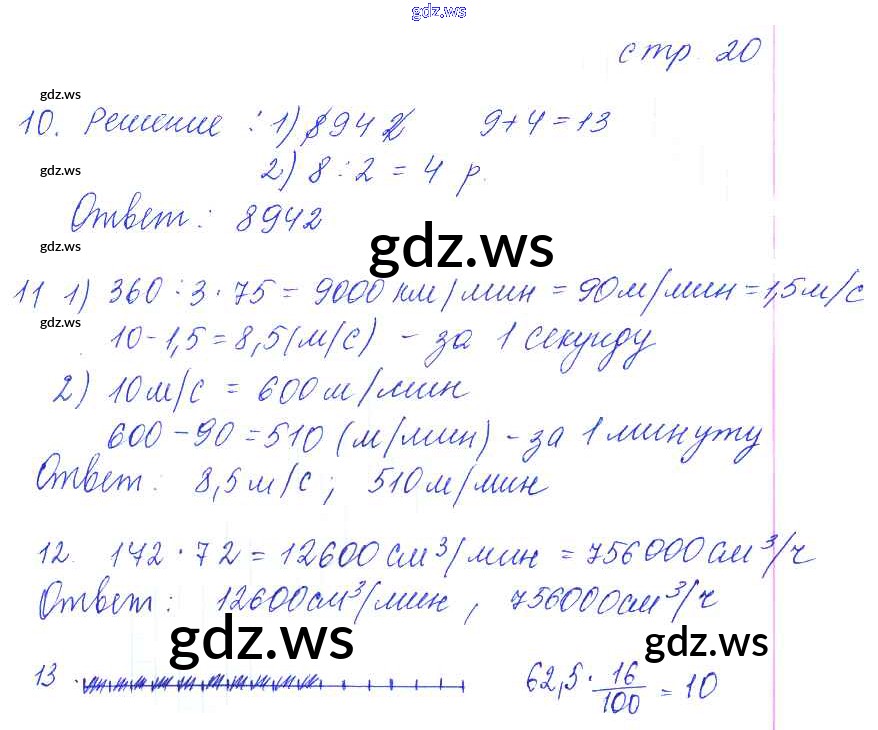 gdz.ws
стр. 20
gdz.ws
10. Решение : 1) 8942 9+4=13
gdz.ws
2) 8 : 2 = 4 р.
Ответ: 8942
gdz.ws
gdz.ws
11 1) 360 : 3 · 75 = 9000 км/мин = 90м/мин = 1,5м/с
gdz.ws
10-1,5 = 8,5(м/с) - за 1 секунду
2) 10м/с = 600м/мин
600-90=510 (м/мин) - за 1 минуту
Ответ: 8,5м/с ; 510м/мин
12. 172 · 72 = 12600см³/мин = 756000см³/ч
Ответ: 12600см³/мин , 756000см³/ч
gdz.ws
gdz.ws
13 62,5 · 16/100 = 10